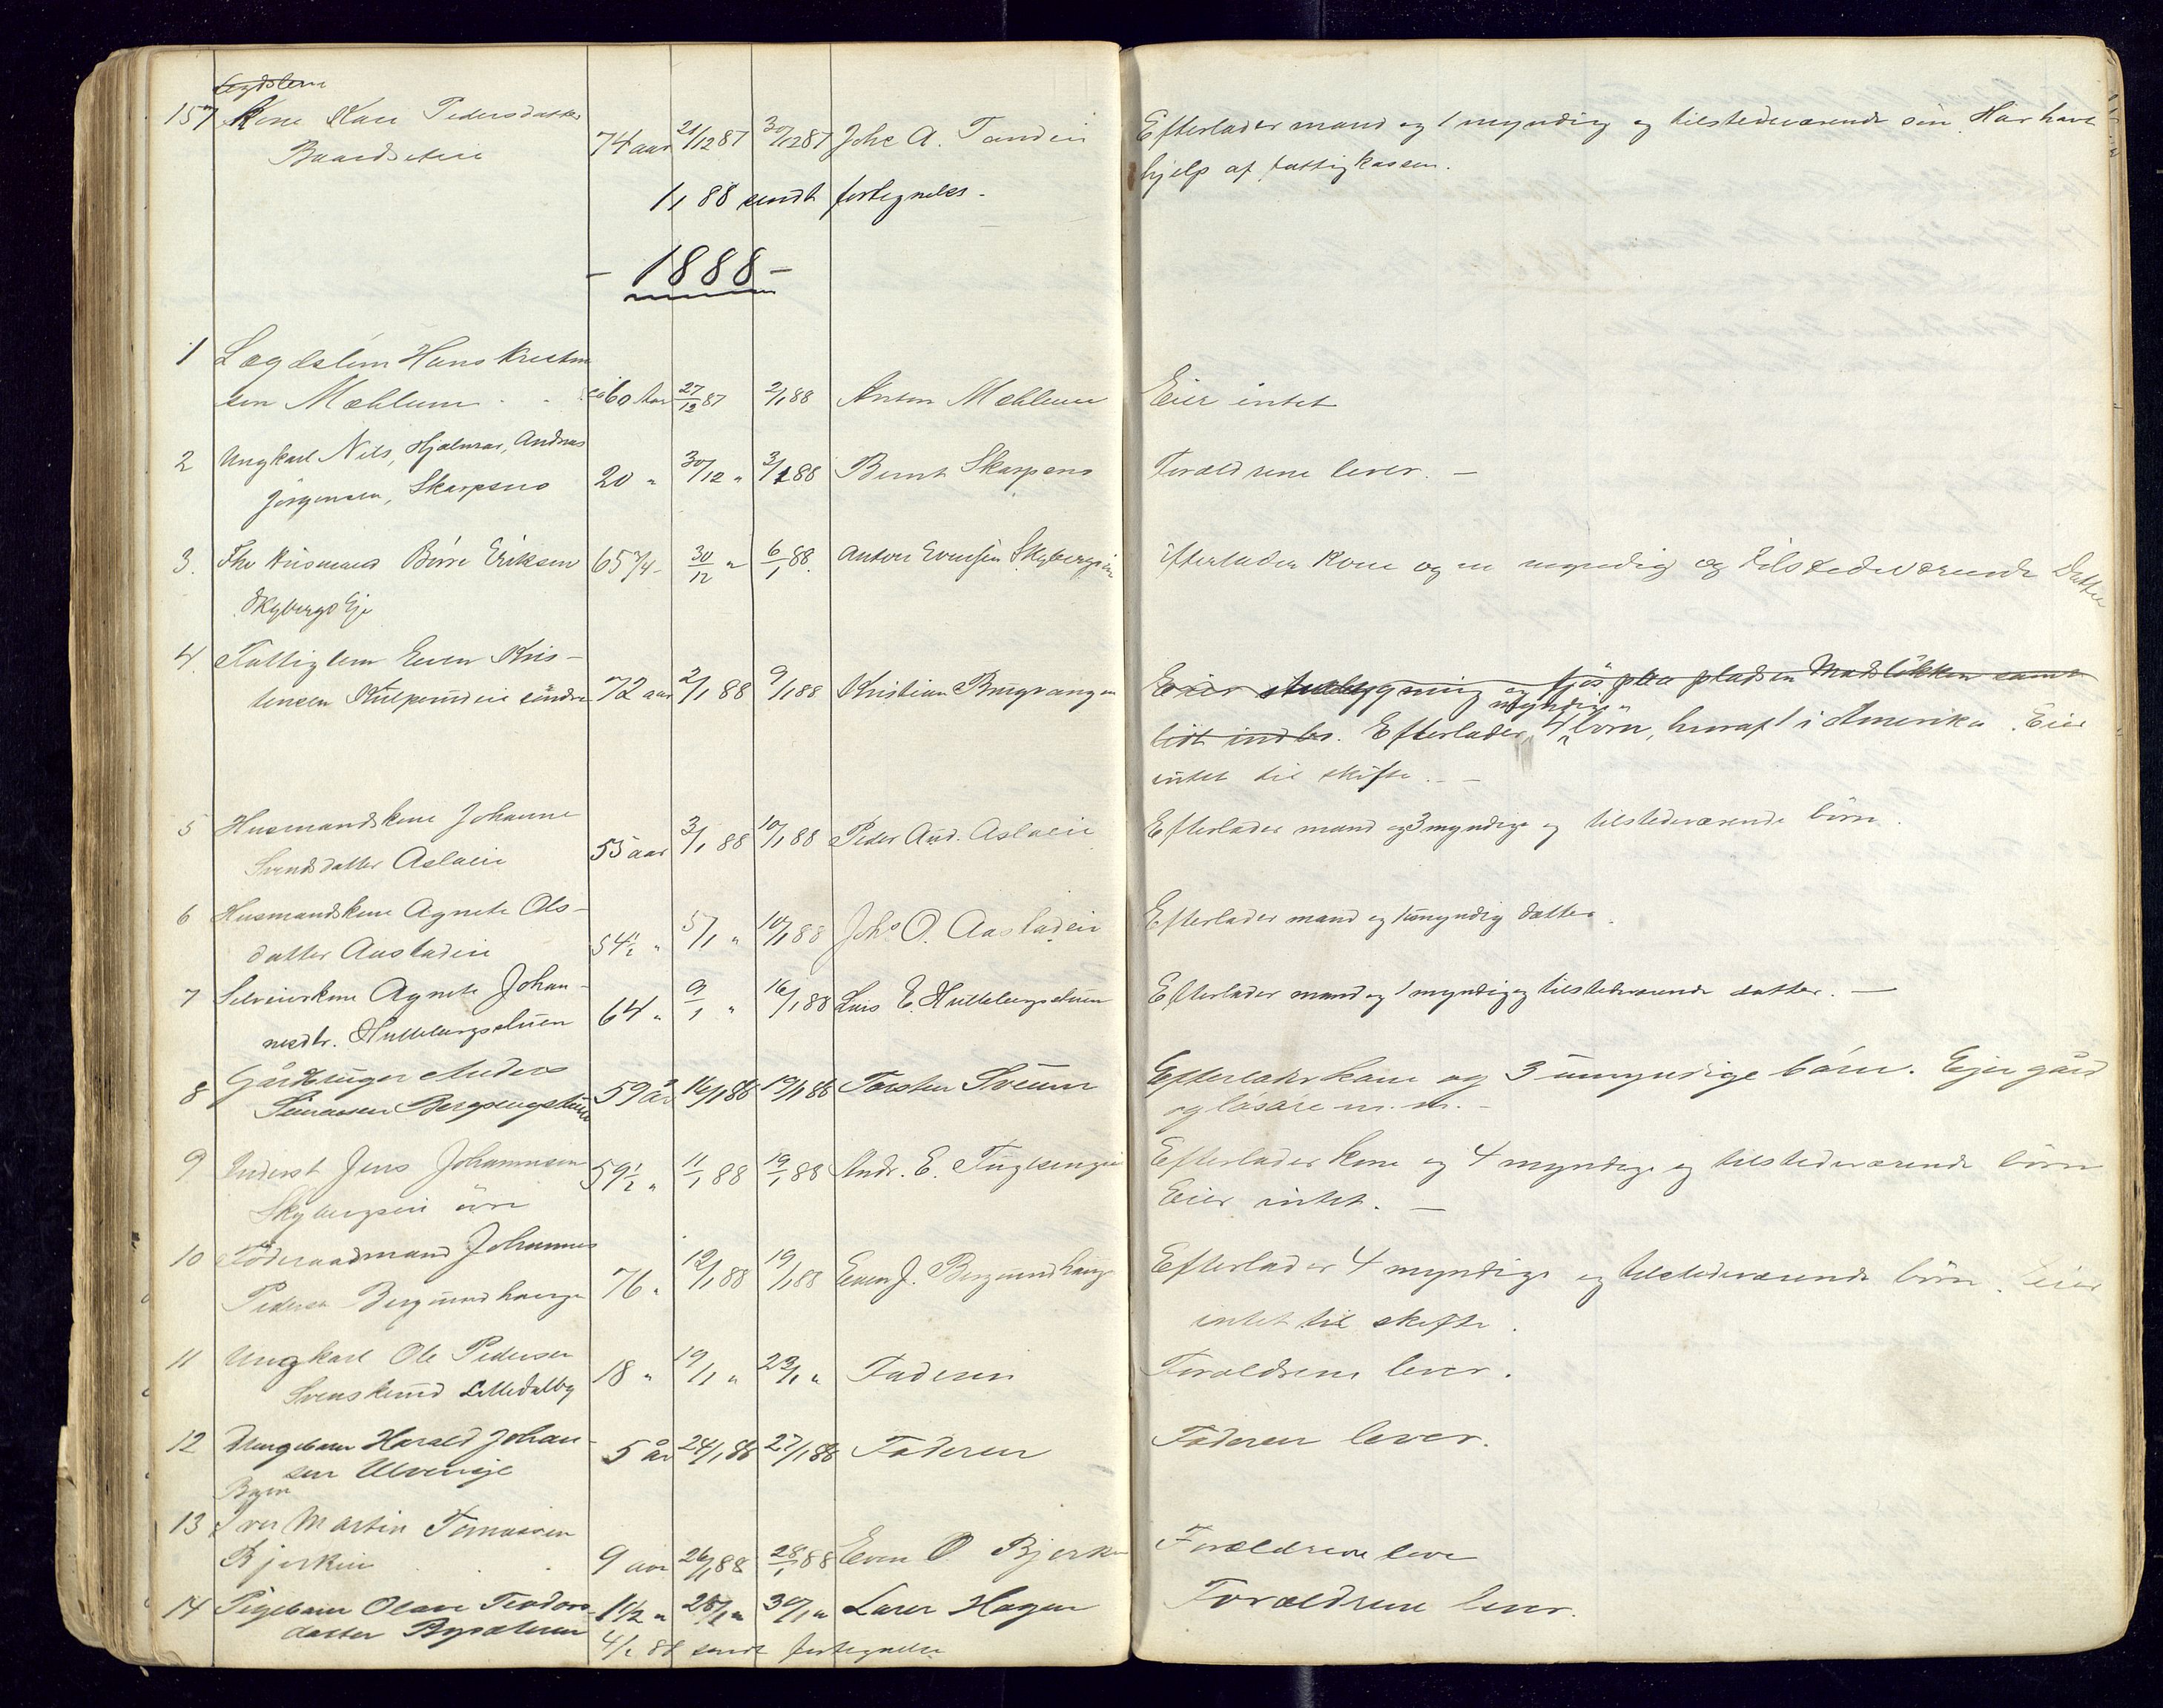 Lægdslem
157 Kone Kari Pedersdatter
Baardseteie 74 aar 21/12 87 30/12 87 Johs A. Tandeie Efterlader mand og 1 myndig og tilstedeværende sön. Har havt
hjelp af fattigkassen.
1/1 88 sendt fortegnelse -
- 1888 -
1 Lægdslem Hans Kristian
sen Mæhlum ca 60 Aar 27/12 87 2/1 88 Anton Mæhlum Eier intet
2 Ungkarl Nils, Hjalmar, Andreas
Jörgensen, Skarpsno 20 " 30/12 " 3/1 88 Bernt Skarpsno Forældrene lever. -
3. Fhv Husmand Börre Eriksen 65 3/4 - 30/12 " 6/1 88. Anton Evensen Skybergseie Efterlader Kone og en myndig og tilstedeværende Datter
Skybergs Eje
4. Fattiglem Even Kris-
tensen Kulperudeie söndre 72 aar 2/1 88 9/1 88 Kristian Brugvangen Eier stuebygning og fjös paa pladsen Madslökken samt
lidt indbo. Efterlader 4 myndige börn, hvoraf 1 i Amerika. Eier
intet til skifte. -
5 Husmandskone Johanne
Svendsdatter Aslaeie 55 aar 3/1 88 10/1 88 Peder And. Aslaeie Efterlader mand og 3 myndige og tilstedeværende börn.
6 Husmandskone Agnete Ols-
datter Aastadeie 54 1/2 " 5/1 " 10/1 88 Johs O. Aastadeie Efterlader mand og 1 umyndig datter.
7 Selveierkone Agnete Johan-
nesdtr. Hullebergstuen 64 " 9/1 " 16/1 88 Lars E. Hullebergstuen Efterlader mand og 1 myndig og tilstedeværende datter. -
8 Gårdbruger Anders
Simensen Bergsengstuen 59 år 16/1 88 19/1 88 Torsten Sveum Efterlader kone og 3 umyndige börn. Ejer gård
og lösöre m. m. -
9 Inderst Jens Johannesen
Skybergseie övre 59 1/2 " 11/1 88 19/1 88 Andr. E. Fuglsengeie Efterlader kone og 4 myndige og tilstedeværende börn
Eier intet. -
10 Föderaadmand Johannes
Pedersen Bergundhaugen 76 " 12/1 88 19/1 88 Even J. Bergundhaug Efterlader 4 myndige og tilstedeværende börn. Eier
intet til skifte.
11 Ungkarl Ole Pedersen
Svenskerud Lilledalby 18 " 19/1 " 23/1 " Faderen Forældrene lever.
12 Drengebarn Harald Johan-
sen Ulveneje 5 år 24/1 88 27/1 88 Faderen Faderen lever.
Barn
13 Iver Martin Tomassen
Bjerkeie 9 aar 26/1 88 28/1 88 Even O Bjerke Forældrene leve
14 Pigebarn Olave Teodors-
datter Bysæteren 1 1/2 " 25/1 " 30/1 " Lars Hagen Forældrene lever.
4/2 88 sendt fortegnelse